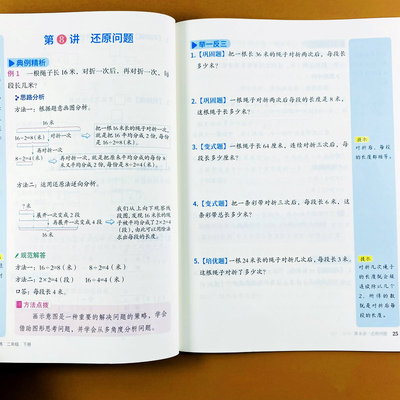 第8讲 还原问题
典例精析
例1 一根绳子长16米,对折一次后,再对折一次,每
段长几米?
思路分析
方法一:根据题意画图分析。
16米
16÷2=8(米)
对折一次
把一根16米长的绳子对折一次,
就是把16米平均分成2份,每份
是16÷2=8(米)
再对折一次
8÷2=4(米)
再对折一次,就是把原来平均分成的每份8
米又平均分成2份,每份是8÷2=4(米)
方法二:运用还原法逆向分析。
?米
展开一次变成2段
再展开一次变成4段
16米
我们从上向下观察线
段图,发现16米长的绳
子被平均分成了2×2=4
(段),由此可以用除法
求出每段的长度。
规范解答
方法一:16÷2=8(米) 8÷2=4(米)
方法二:2×2=4(段) 16÷4=4(米)
口答:每段长4米。
方法点拨
画示意图是一种重要的解决问题的策略,学会
借助图形思考问题,并学会从多角度分析问题。
二年级 下册
举一反三
1.【巩固题】把一根长36米的绳子对折两次后,每段长
多少米?
2.【巩固题】一根绳子对折两次后每段的长度是8米,
这根绳子长多少米?
3.【变式题】一根绳子长64厘米,连续对折三次后,每
段长多少厘米?
提示
对折后,每段
的长度都相等。
4.【变式题】把一条彩带对折三次后,每段长6米,这
条彩带总长多少米?
5.【培优题】一根24米长的绳子对折后,每段长3米,
这根绳子对折了多少次?
提示
对折几次绳子
的长度就会被
连续除以几个
2,所得的数
就是对折后每
段的长度。
第8讲 还原问题 25